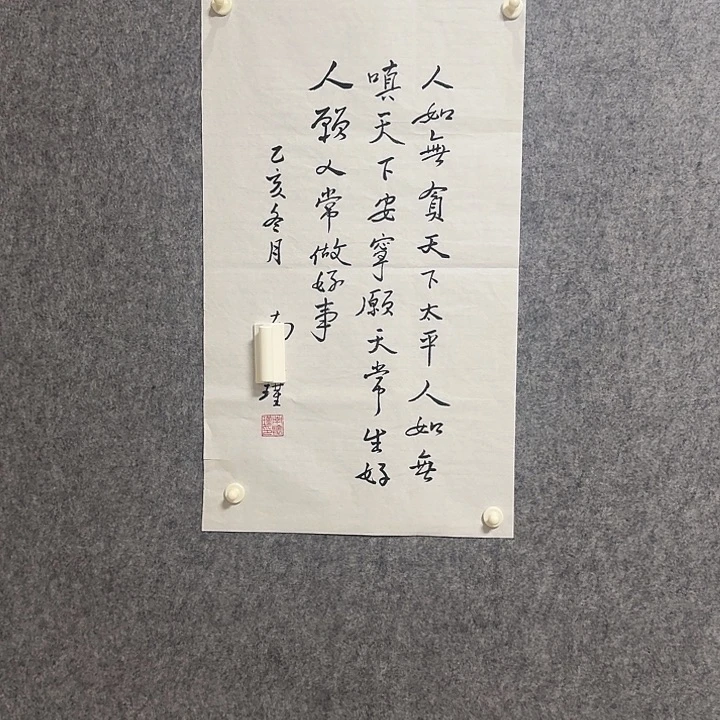 人如無貪天下太平人如無
嗔天下安寧願天常生好
人願人常做好事
乙亥冬月
瑾